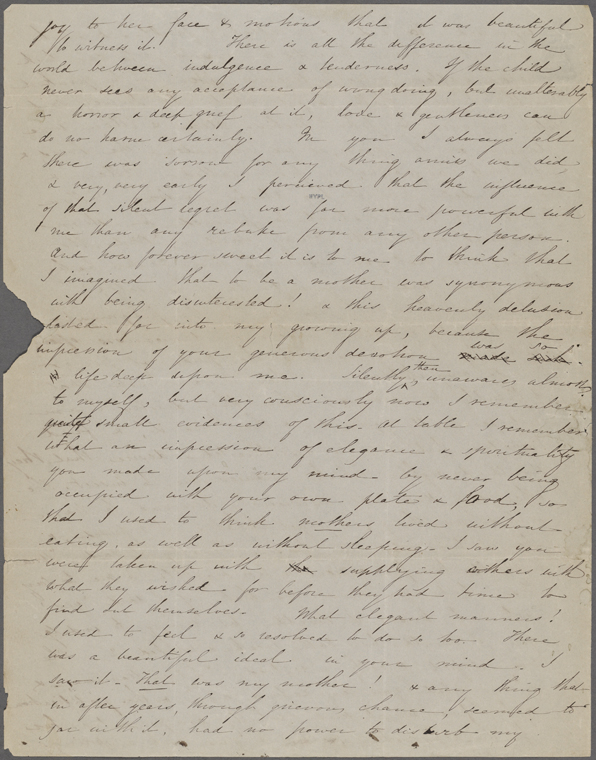 joy to her face & motions that it was beautiful
to witness it. There is all the difference in the
world between indulgence & tenderness. If the child
never sees any acceptance of wrongdoing, but unalterably
a horror & deep grief at it, love & gentleness can
do no harm certainly. In you I always felt
there was sorrow for any thing amiss we did,
& very, very early I perceived that the influence
of that silent regret was far more powerful with
me than any rebuke from any other person.
And how forever sweet it is to me to think that
I imagined that to be a mother was synonymous
with being disinterested! & this heavenly delusion
lasted far into my growing up, because the
impression of your generous devotion was so
life deep upon me. Silently, then, unawares almost
to myself, but very consciously now I remember
quite small evidences of this. At table I remember
what an impression of elegance & spirituality
you made upon my mind - by never being
occupied with your own plate & food, so
that I used to think mothers lived without
eating, as well as without sleeping. I saw you
were taken up with supplying others with
what they wished for before they had time to
find out themselves. What elegant manners!
I used to feel & so resolved to do so too. There
was a beautiful ideal in your mind. I
saw it - That was my mother! & any thing that
in after years, through grievous chance, seemed to
jar with it, had no power to disturb my